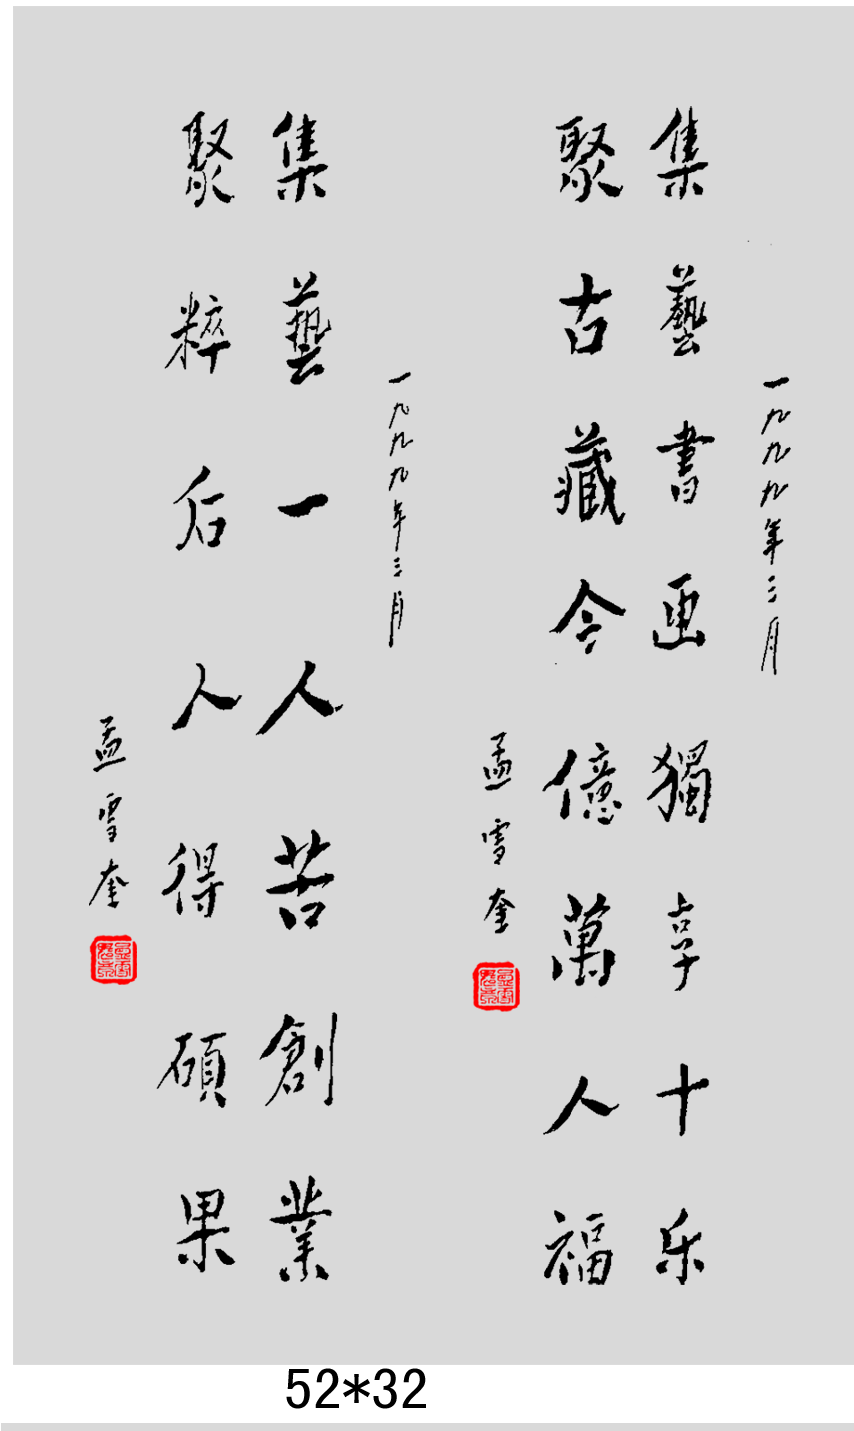 一九九九年三月
集藝書画獨享十乐
聚古藏今億萬人福
孟雪奎
一九九九年三月
集藝一人苦創業
聚粹后人得碩果
孟雪奎
52*32